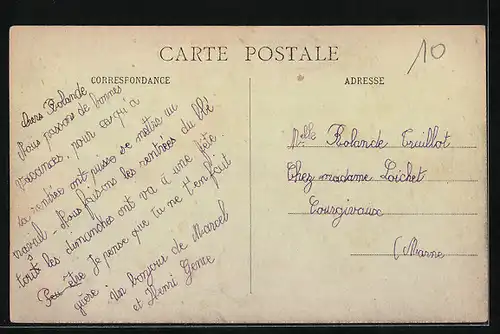 CARTE POSTALE
10
CORRESPONDANCE
chers Rolande
Nous passons de bonnes
vacances. pour ce qu'à
la rentrée ont puisse se mettre au
travail. Nous faisons les rentrées du blé
touts les dimanches ont va à une fête
Peu-être Je pense que tu ne t'en fait
guère Un bonjour de Marcel
et Henri Gence
ADRESSE
Melle Rolande Truillot
Chez madame Loichet
Courgivaux
(Marne